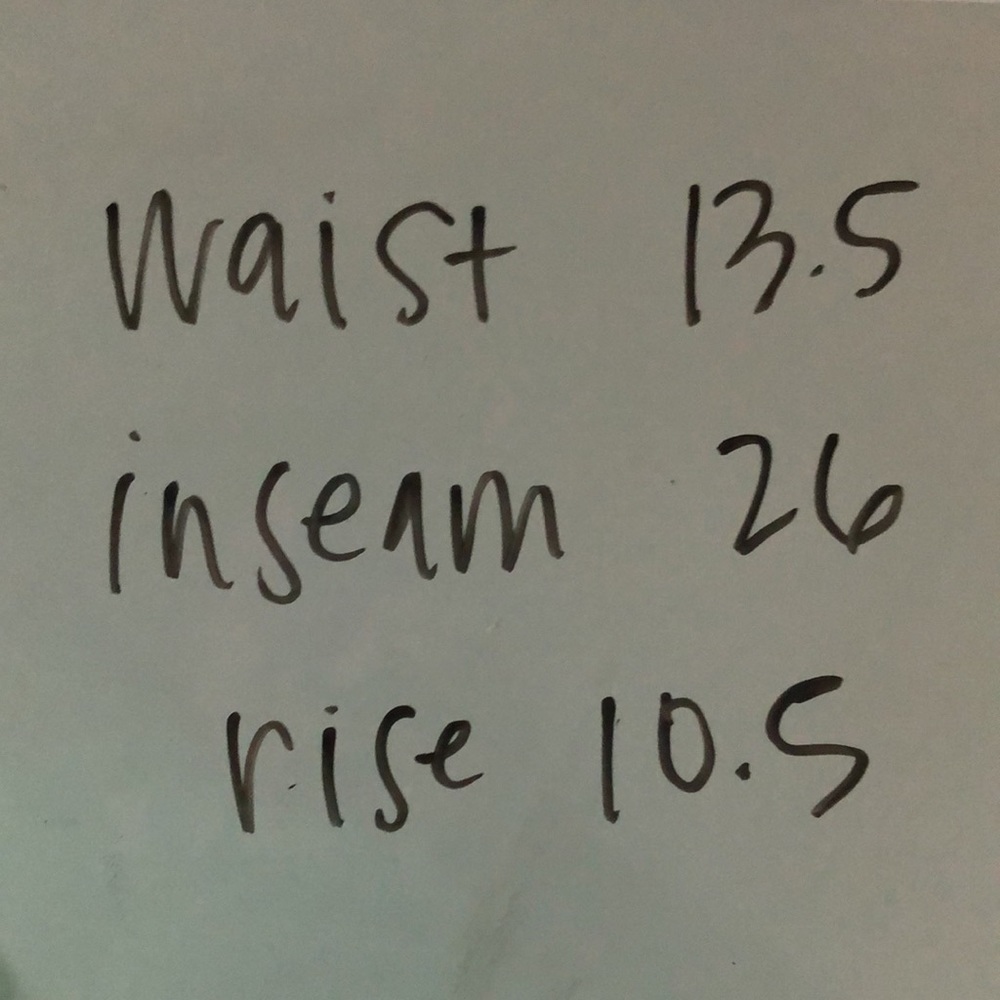 waist 13.5
inseam 26
rise 10.5